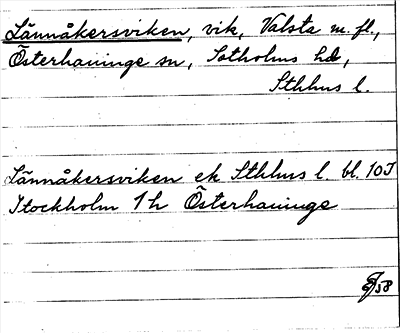 Lännåkersviken, vik, Valsta m. fl.,
Österhaninge sn, Sotholms hd,
Sthlms l.
Lännåkersviken ek Sthlms l. bl. 10J
Stockholm 1 h Österhaninge
58